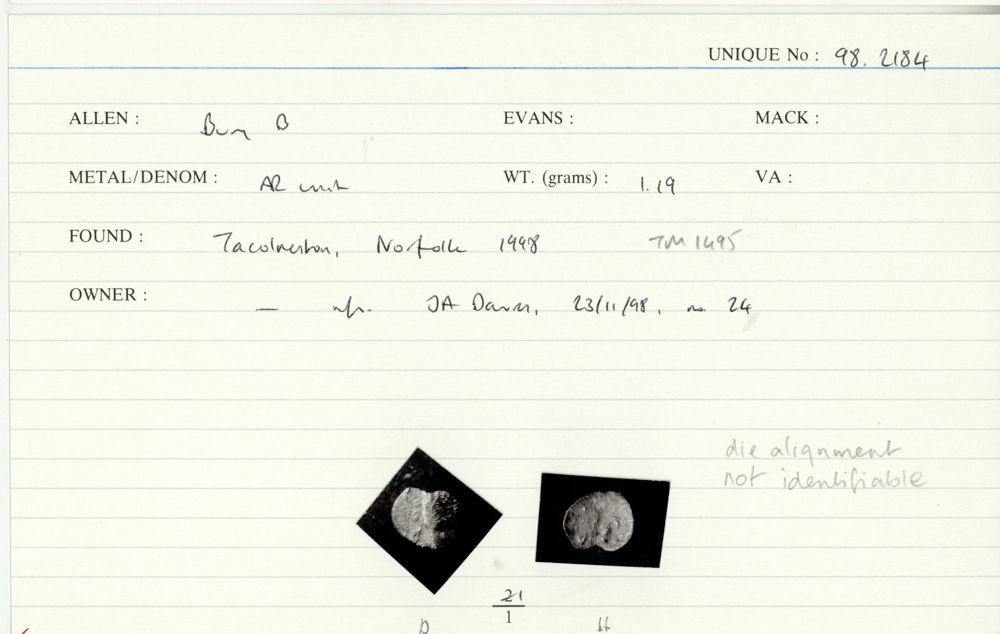 UNIQUE No : 98. 2184
ALLEN : Bury B EVANS : MACK :
METAL/DENOM : AR unit WT. (grams) : 1.19 VA :
FOUND : Tacolneston, Norfolk 1998 TM 1495
OWNER : — inf. JA Davies, 23/11/98, no. 24
die alignment
not identifiable
21
1